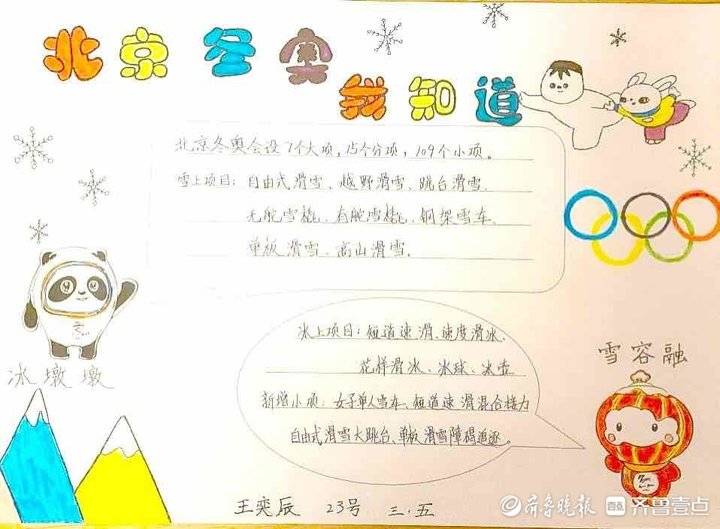 北京冬奥
我知道
北京冬奥会设7个大项,15个分项,109个小项。
雪上项目:自由式滑雪、越野滑雪、跳台滑雪
无舵雪橇、有舵雪橇、钢架雪车、
单板滑雪、高山滑雪。
冰上项目:短道速滑、速度滑冰、
花样滑冰、冰球、冰壶
新增小项:女子单人雪车、短道速滑混合接力
自由式滑雪大跳台、单板滑雪障碍追逐。
冰墩墩
雪容融
王奕辰 23号 三.五
齐鲁晚报 齐鲁壹点